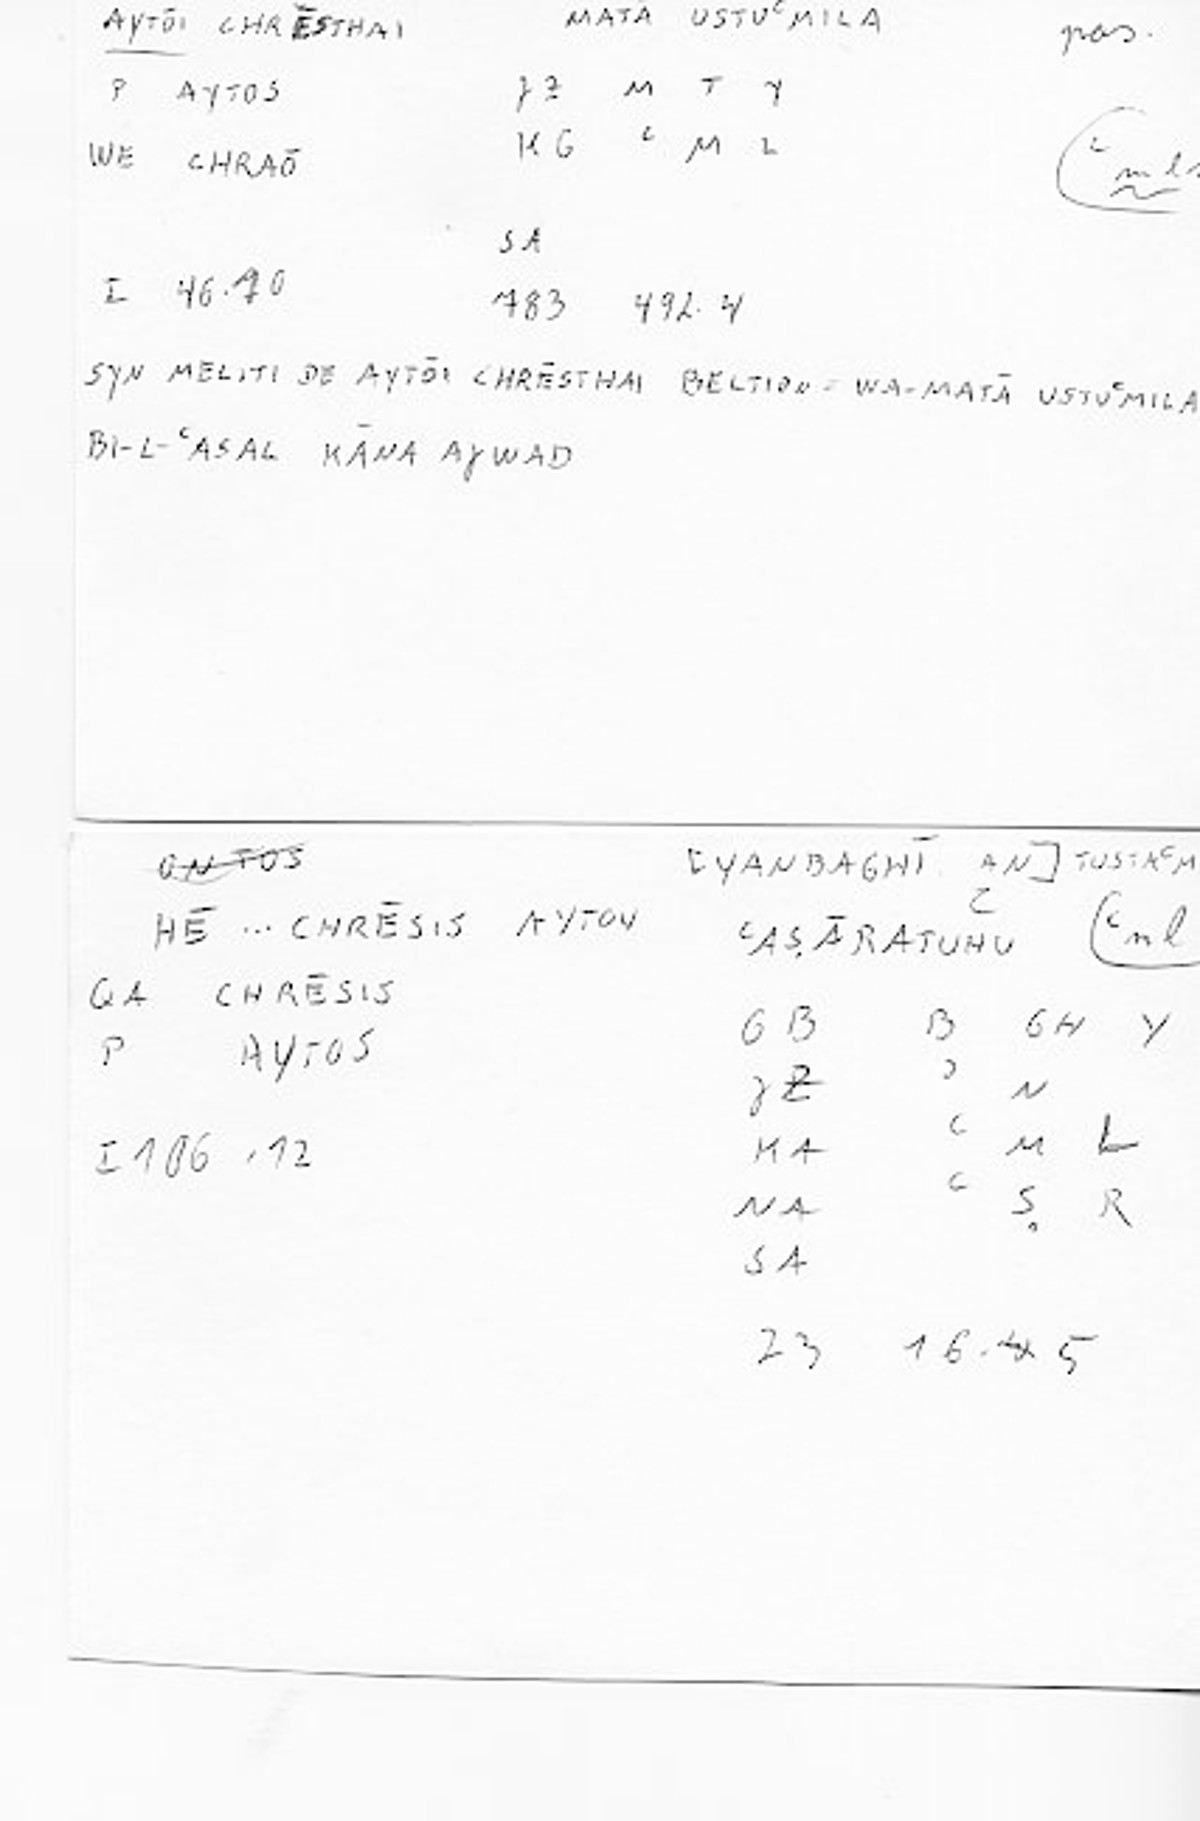 AYTŌI CHRĒSTHAI MATĀ USTUᶜMILA pas.
P AYTOS ɣZ M T Y
WE CHRAŌ KG ᶜ M L (ᶜmls
SA
I 46.10 183 492.4
SYN MELITI DE AYTŌI CHRĒSTHAI BELTION = WA-MATĀ USTUᶜMILA
BI-L-ᶜASAL KĀNA AɣWAD
ONTOS [YANBAGHĪ AN] TUSTAᶜM
HĒ ... CHRĒSIS AYTOU ᶜAṢĀRATUHU (ᶜml
GA CHRĒSIS GB B GH Y
P AYTOS ɣZ ʾ N
KA ᶜ M L
I 106.12 NA ᶜ Ṣ R
SA
23 16.5